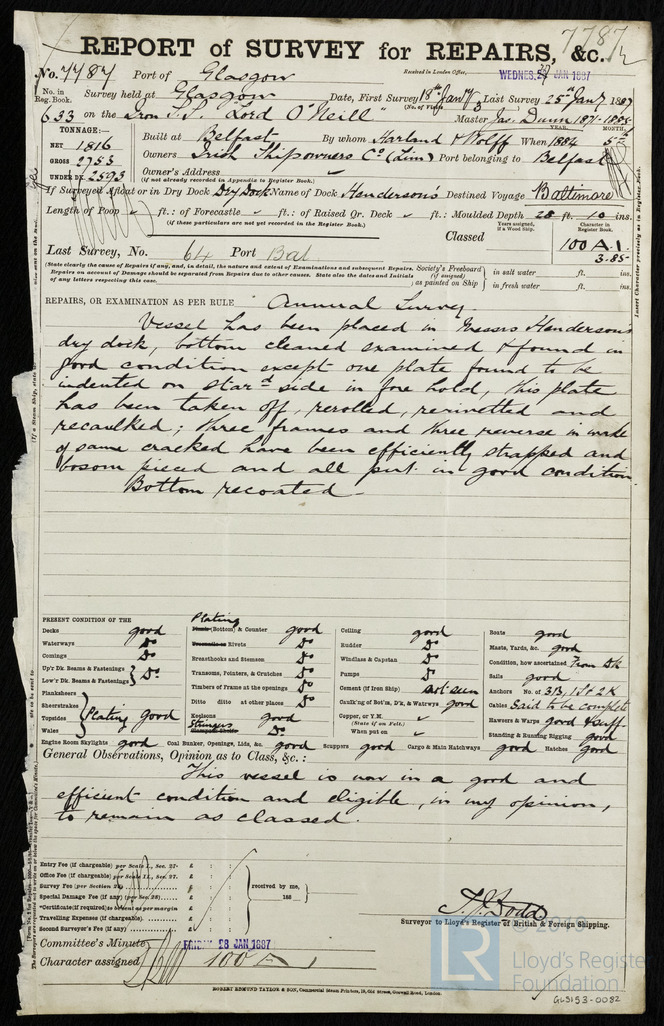 7787
REPORT of SURVEY for REPAIRS, &c.
No. 7787 Port of Glasgow Received in London Office, WEDNES. 27 JAN 1887
No. in Reg. Book. Survey held at Glasgow Date, First Survey 18th Jany Last Survey 25th Jany 1887
(No. of Visits 3)
633 on the Iron S.S. "Lord O'Neill" Master Jas. Dunn 1871-1884
TONNAGE:— YEAR. MONTH.
NET 1816 Built at Belfast By whom Harland & Wolff When 1884 5th
GROSS 2753 Owners Irish Shipowners Co (Lim) Port belonging to Belfast
UNDER DK. 2593 Owner's Address
(if not already recorded in Appendix to Register Book.)
If Surveyed Afloat or in Dry Dock Dry Dock Name of Dock Henderson's Destined Voyage Baltimore
Length of Poop ft.: of Forecastle ft.: of Raised Qr. Deck ft.: Moulded Depth 28 ft. 10 ins.
(if these particulars are not yet recorded in the Register Book.)
Years assigned, if a Wood Ship. Character in Register Book.
Classed 100 A.1.
3.85
Last Survey, No. 64 Port Bal.
(State clearly the cause of Repairs if any, and, in detail, the nature and extent of Examinations and subsequent Repairs.
Repairs on account of Damage should be separated from Repairs due to other causes. State also the dates and Initials
of any letters respecting this case.
Society's Freeboard (if assigned) as painted on Ship in salt water ft. ins.
in fresh water ft. ins.
REPAIRS, OR EXAMINATION AS PER RULE Annual Survey
Vessel has been placed in Messrs Henderson's
dry dock, bottom cleaned examined & found in
good condition except one plate found to be
indented on stard side in fore hold, this plate
has been taken off, rerolled, rerivetted and
recaulked; three frames and three reverse in wake
of same cracked have been efficiently strapped and
bosom pieced and all put in good condition.
Bottom recoated.
PRESENT CONDITION OF THE
Decks good
Waterways Do
Comings Do
Up'r Dk. Beams & Fastenings
Low'r Dk. Beams & Fastenings Do
Planksheers
Sheerstrakes
Topsides Plating good
Wales
Plating
Plank (Bottom) & Counter good
Treenails or Rivets Do
Breasthooks and Stemson Do
Transoms, Pointers, & Crutches Do
Timbers of Frame at the openings Do
Ditto ditto at other places Do
Keelsons good
Stringers Do
Ceiling good
Rudder Do
Windlass & Capstan Do
Pumps Do
Cement (if Iron Ship) not seen
Caulk'g of Bot'm, D'k, & Waterways good
Copper, or Y.M.
(State if on Felt.)
When put on
Boats good
Masts, Yards, &c. good
Condition, how ascertained From Dk
Sails good
Anchors No. of 3B, 1S & 2K
Cables Said to be complete
Hawsers & Warps good & suff.
Standing & Running Rigging good
Engine Room Skylights good Coal Bunker, Openings, Lids, &c. good Scuppers good Cargo & Main Hatchways good Hatches good
General Observations, Opinion as to Class, &c.:
This vessel is now in a good and
efficient condition and eligible, in my opinion,
to remain as classed.
Entry Fee (if chargeable) per Scale I., Sec. 27. £ : :
Office Fee (if chargeable) per Scale II., Sec. 27. £ : :
Survey Fee (per Section 28) £ : :
Special Damage Fee (if any) (per Sec. 28) £ : :
*Certificate (if required) to be sent as per margin
Travelling Expenses (if chargeable) £ : :
Second Surveyor's Fee (if any) £ : :
received by me,
188
Surveyor to Lloyd's Register of British & Foreign Shipping.
Committee's Minute FRIDAY 28 JAN 1887
Character assigned 100 A 1
ROBERT EDMUND TAYLOR & SON, Commercial Steam Printers, 19, Old Street, Goswell Road, London.
© 2019
LR
Lloyd's Register
Foundation
GLS153-0082